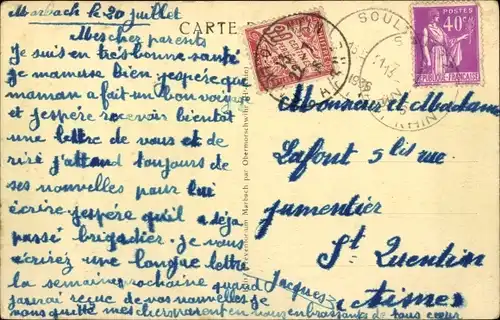 Marbach le 20 juillet
Mes cher parents
Je suis en très bonne santé
je mamuse bien jespére que
maman a fait un bon voyage
et jespére recevoir bientôt
une lettre de vous et de
riri j'attend toujours de
ses nouvelles pour lui
écrire jespére qu'il a déja
passé brigadier. je vous
écrirez une longue lettre
la semaine prochaine quand
jaurai reçue de vos nouvelles je
vous quitte mes cher parent en vous enbrassant de tous cœur
Jacques
CARTE
Marbach par Obermorschwihr
SOUL
1935
POSTES
40c
REPUBLIQUE FRANÇAISE
Monsieur et Madame
Lafont 5 bis rue
jumentier
St Quentin
Aisne